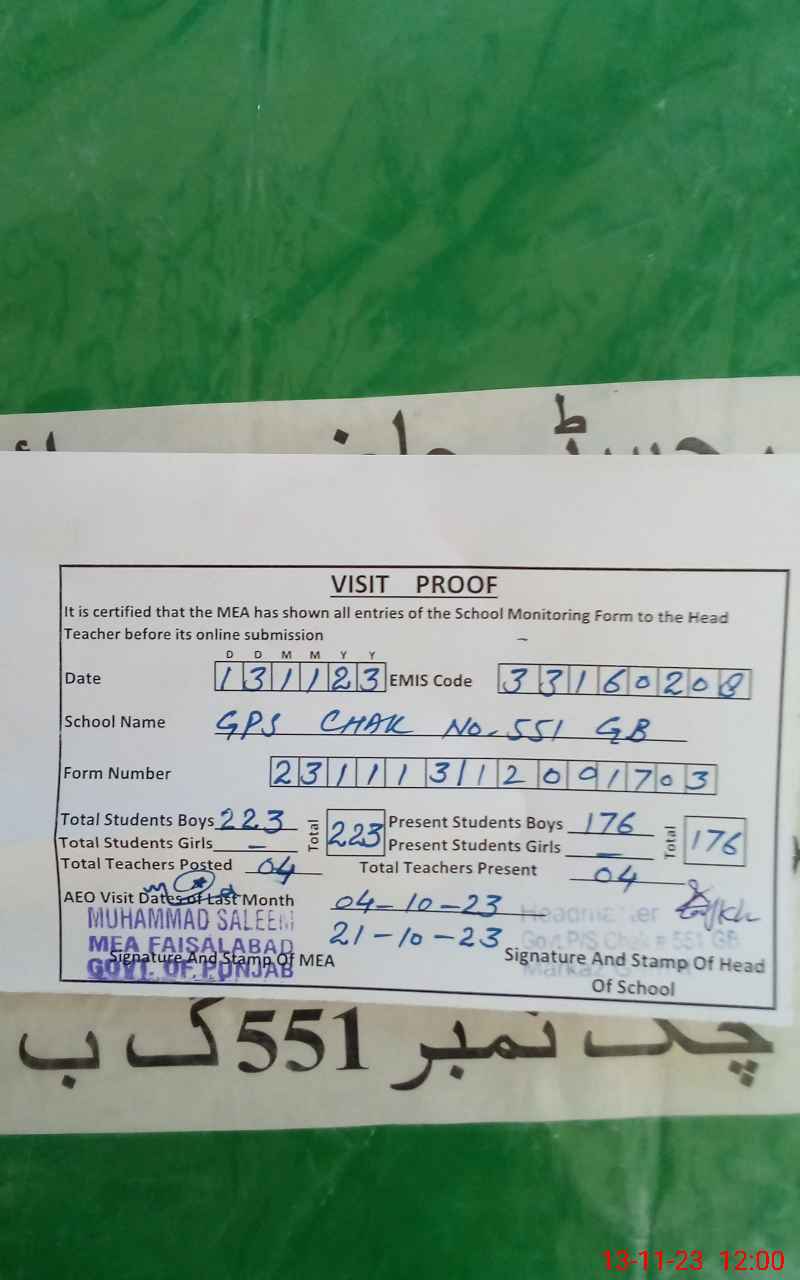 VISIT PROOF
It is certified that the MEA has shown all entries of the School Monitoring Form to the Head
Teacher before its online submission
D D M M Y Y
Date 131123 EMIS Code 33160208
School Name GPS CHAK No. 551 GB
Form Number 2311131120091703
Total Students Boys 223 Total 223 Present Students Boys 176 Total 176
Total Students Girls – Present Students Girls –
Total Teachers Posted 04 Total Teachers Present 04
AEO Visit Dates of Last Month 04-10-23
21-10-23
MUHAMMAD SALEEM
MEA FAISALABAD
GOVT. OF PUNJAB
Signature And Stamp Of MEA
Headmaster
Govt P/S Chak # 551 GB
Signature And Stamp Of Head
Of School
چک نمبر 551 گ ب
13-11-23 12:00